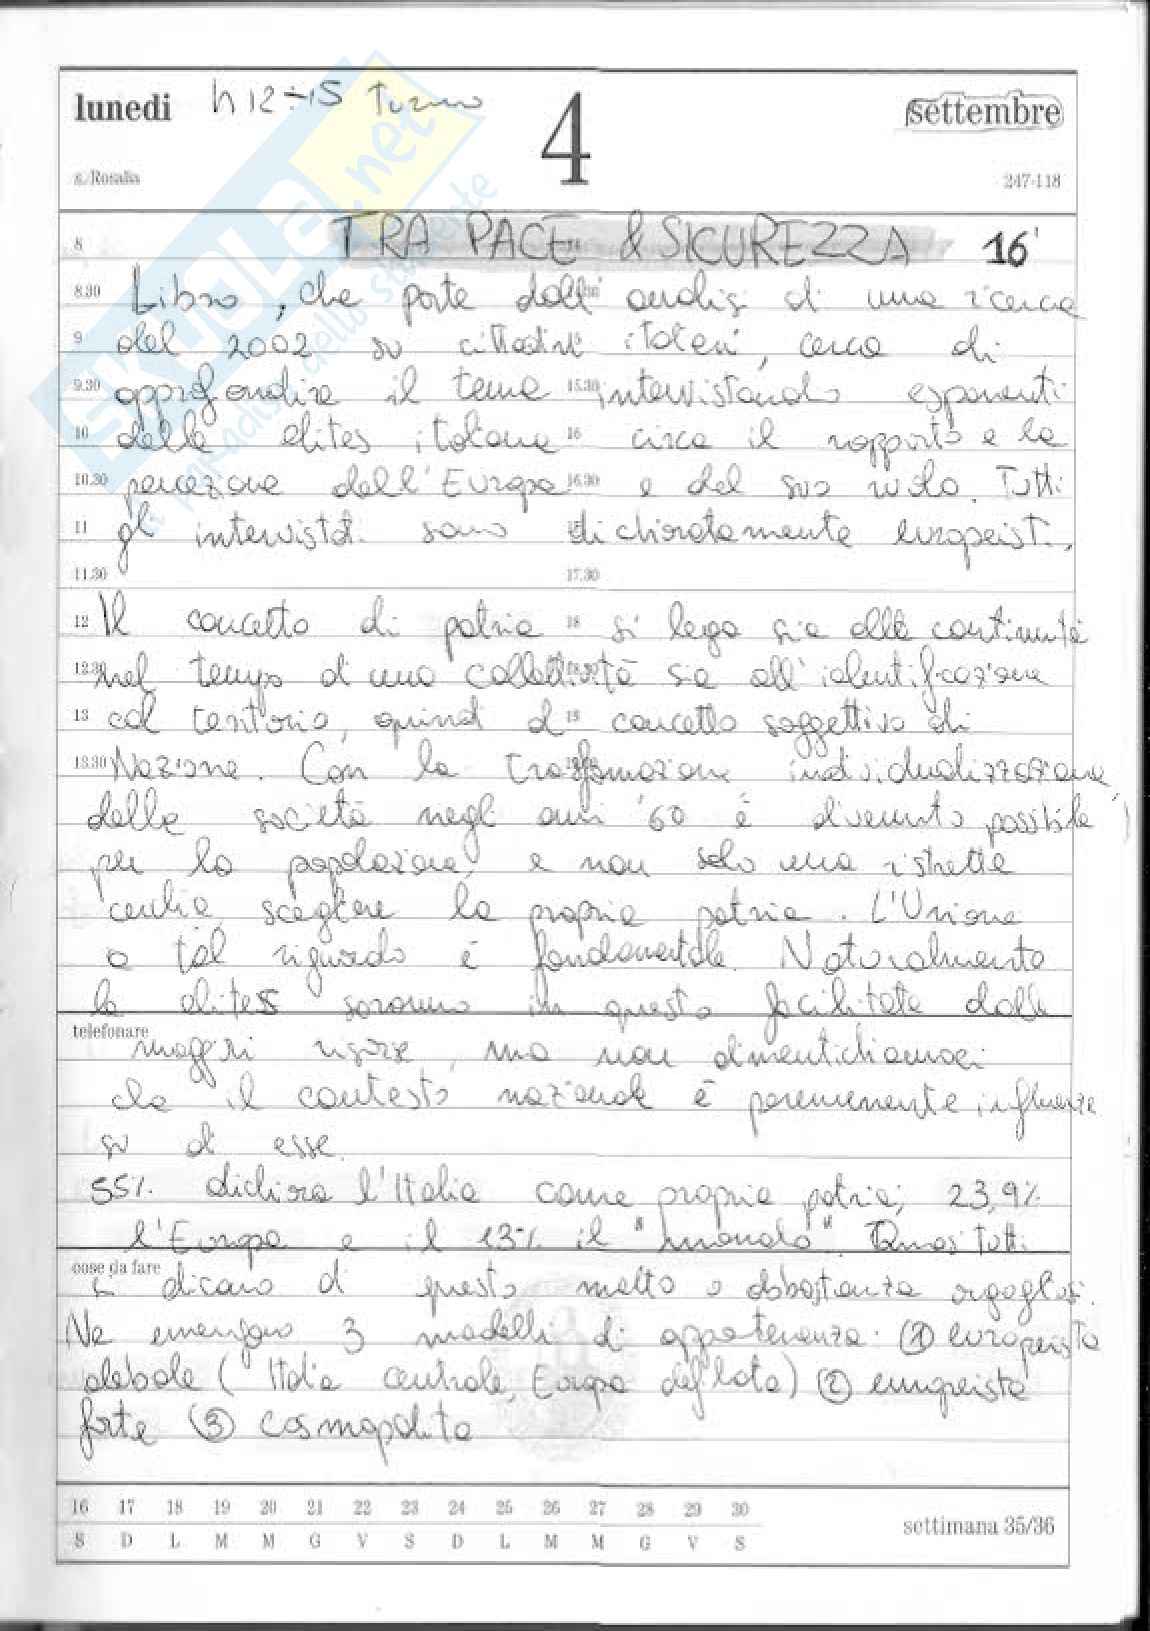 lunedì h 12÷15 Turno 4 settembre
s. Rosalia 247-118
SKUOLA.net
il paradiso dello studente
8 TRA PACE & SICUREZZA 16'
8.30 Libro, che parte dall'analisi di una ricerca
9 del 2002 su cittadini italiani, cerca di
9.30 approfondire il tema 15.30 intervistando esponenti
10 delle elites italiane 16 circa il rapporto e la
10.30 percezione dell'Europa 16.30 e del suo ruolo. Tutti
11 gli intervistati sono dichiaratamente europeisti.
11.30 17.30
12 Il concetto di patria 18 si lega sia alla continuità
12.30 nel tempo di una collettività sia all'identificazione
13 col territorio, quindi al 19 concetto soggettivo di
13.30 Nazione. Con la trasformazione individualizzazione
della società negli anni '60 è divenuto possibile
per la popolazione, e non solo una ristretta
cerchia, scegliere la propria patria. L'Unione
a tal riguardo è fondamentale. Naturalmente
le elites saranno in questo facilitate dalle
telefonare
maggiori risorse, ma non dimentichiamoci
che il contesto nazionale è perennemente influente
su di esse.
55% dichiara l'Italia come propria patria; 23,9%
l'Europa e il 13% il "mondo". Quasi tutti
cose da fare
si dicono di questo molto o abbastanza orgogliosi.
Ne emergono 3 modelli di appartenenza: ① europeista
debole (Italia centrale, Europa defilata) ② europeista
forte ③ cosmopolita
16 17 18 19 20 21 22 23 24 25 26 27 28 29 30
S D L M M G V S D L M M G V S
settimana 35/36